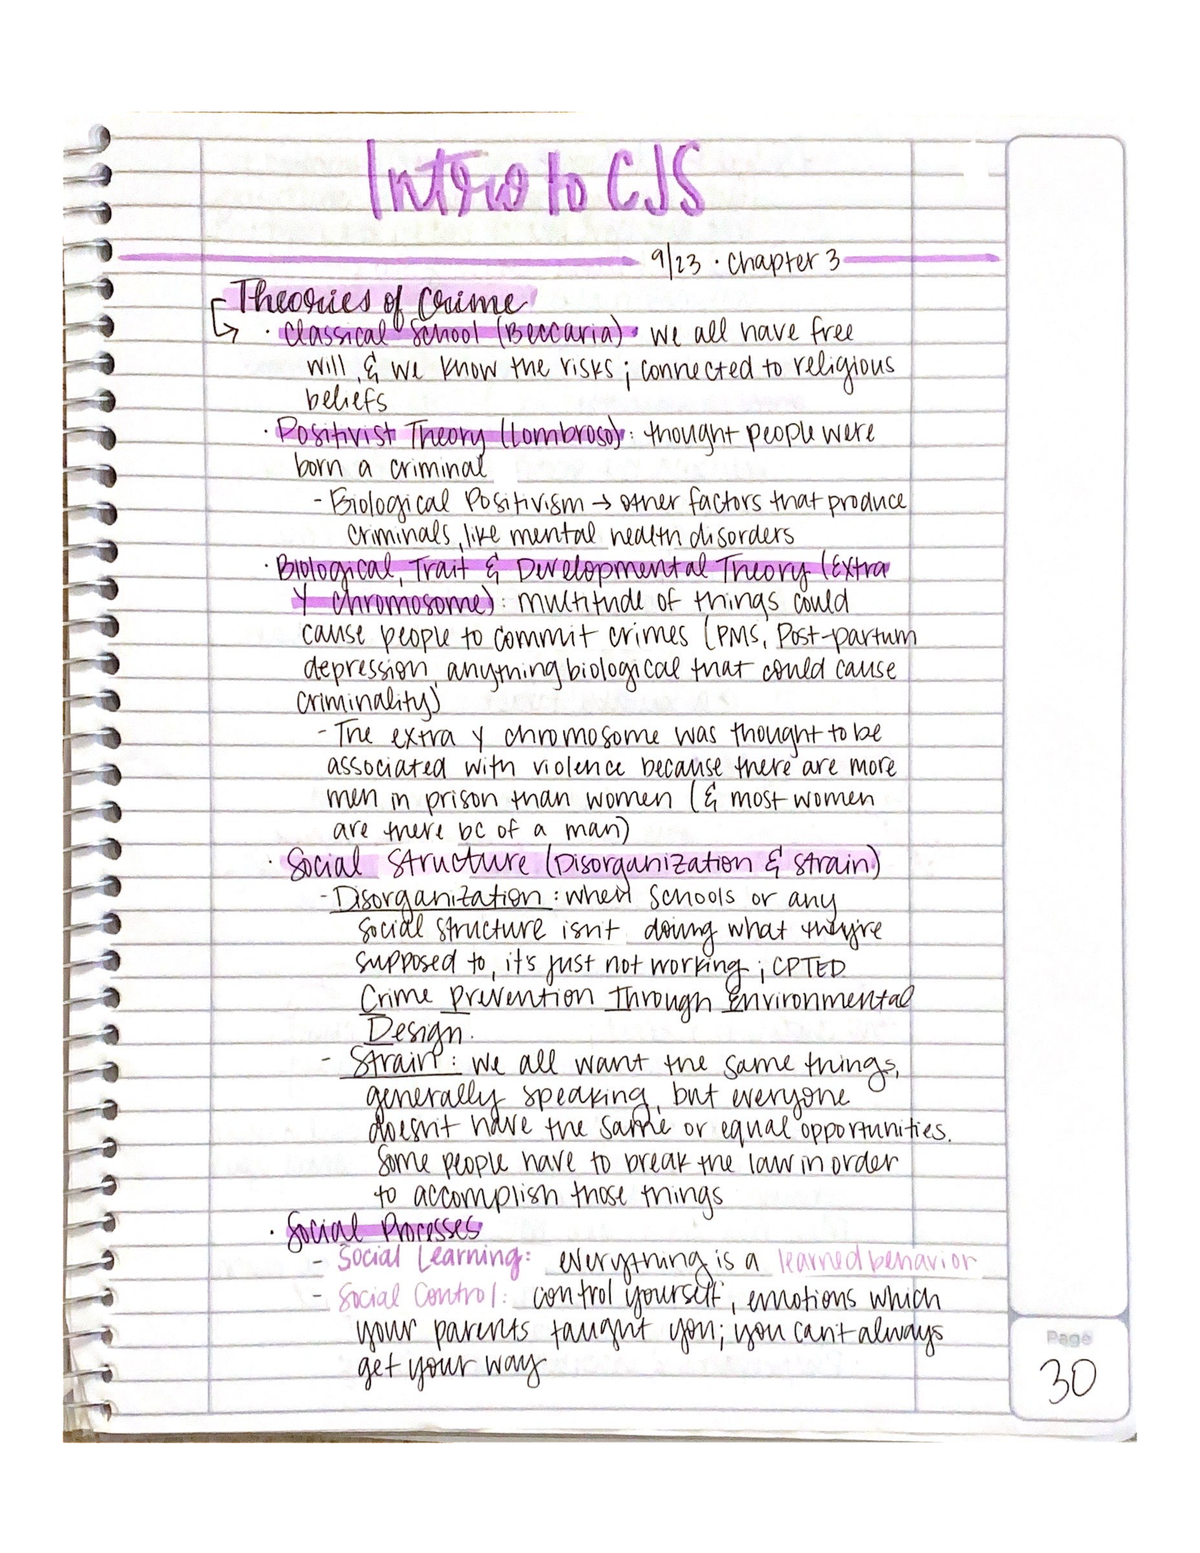 Intro to CJS
9/23 · Chapter 3
Theories of Crime
· Classical School (Beccaria): we all have free
will & we know the risks; connected to religious
beliefs
· Positivist Theory (Lombroso): thought people were
born a criminal
- Biological Positivism → other factors that produce
criminals, like mental health disorders
· Biological, Trait & Developmental Theory (Extra
Y chromosome): multitude of things could
cause people to commit crimes (PMS, Post-partum
depression, anything biological that could cause
criminality)
- The extra Y chromosome was thought to be
associated with violence because there are more
men in prison than women (& most women
are there bc of a man)
· Social Structure (Disorganization & Strain)
- Disorganization: when schools or any
social structure isnt doing what they're
supposed to, it's just not working; CPTED
Crime Prevention Through Environmental
Design.
- Strain: we all want the same things,
generally speaking, but everyone
doesn't have the same or equal opportunities.
Some people have to break the law in order
to accomplish those things
· Social Processes
- Social Learning: everything is a learned behavior
- Social Control: control yourself, emotions which
your parents taught you; you can't always
get your way
Page
30